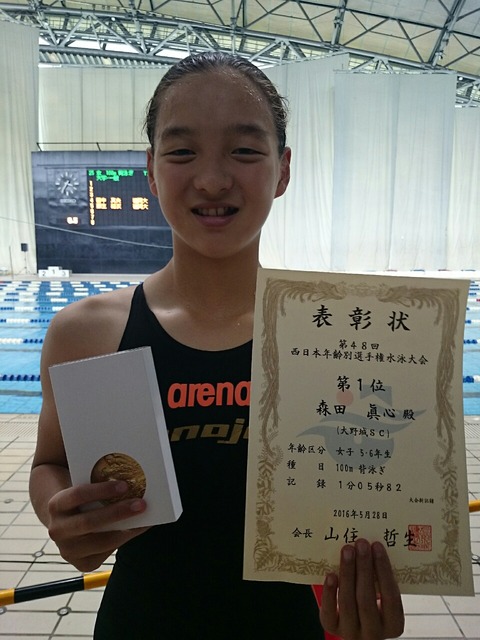 表彰状
第48回
西日本年齢別選手権水泳大会
第1位
森田 眞心 殿
(大野城SC)
年齢区分 女子 5・6年生
種目 100m 背泳ぎ
記録 1分05秒82
大会新記録
2016年5月28日
会長 山住 哲生
arena